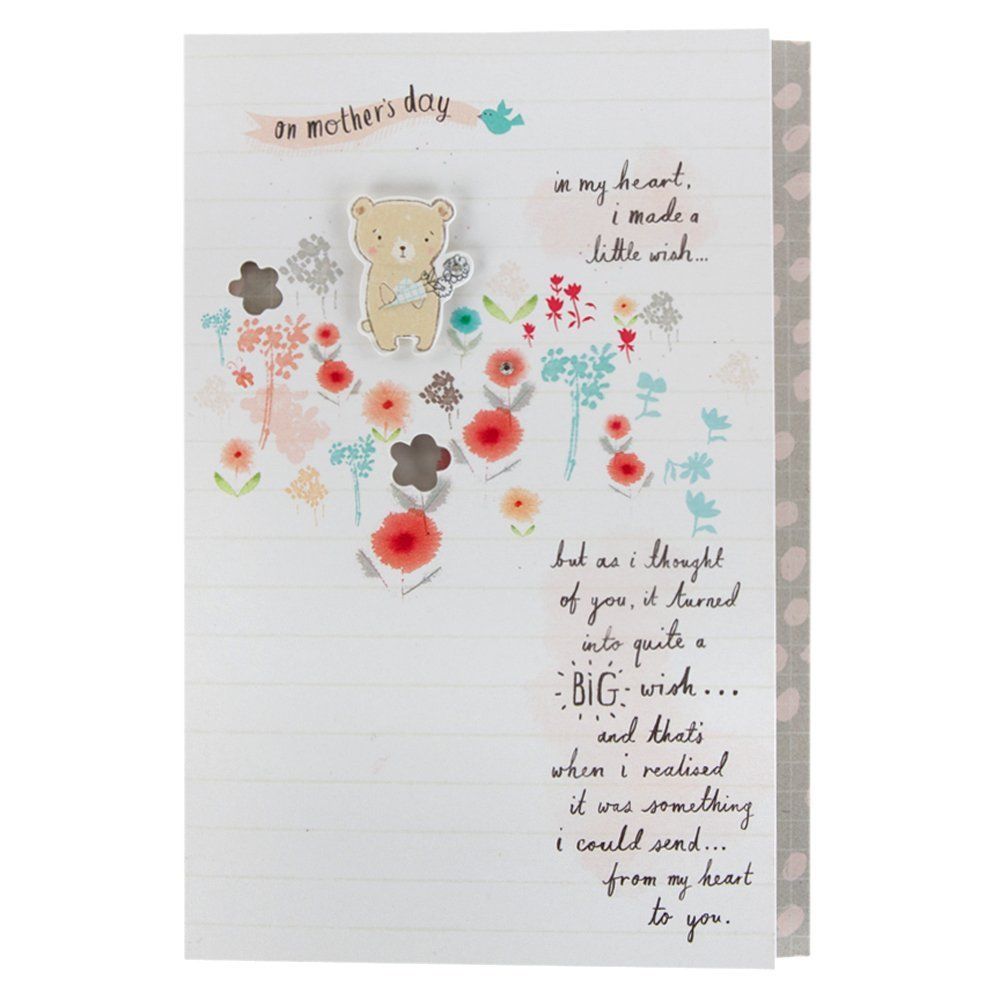 on mother's day
in my heart,
i made a
little wish...
but as i thought
of you, it turned
into quite a
BIG wish...
and that's
when i realised
it was something
i could send...
from my heart
to you.